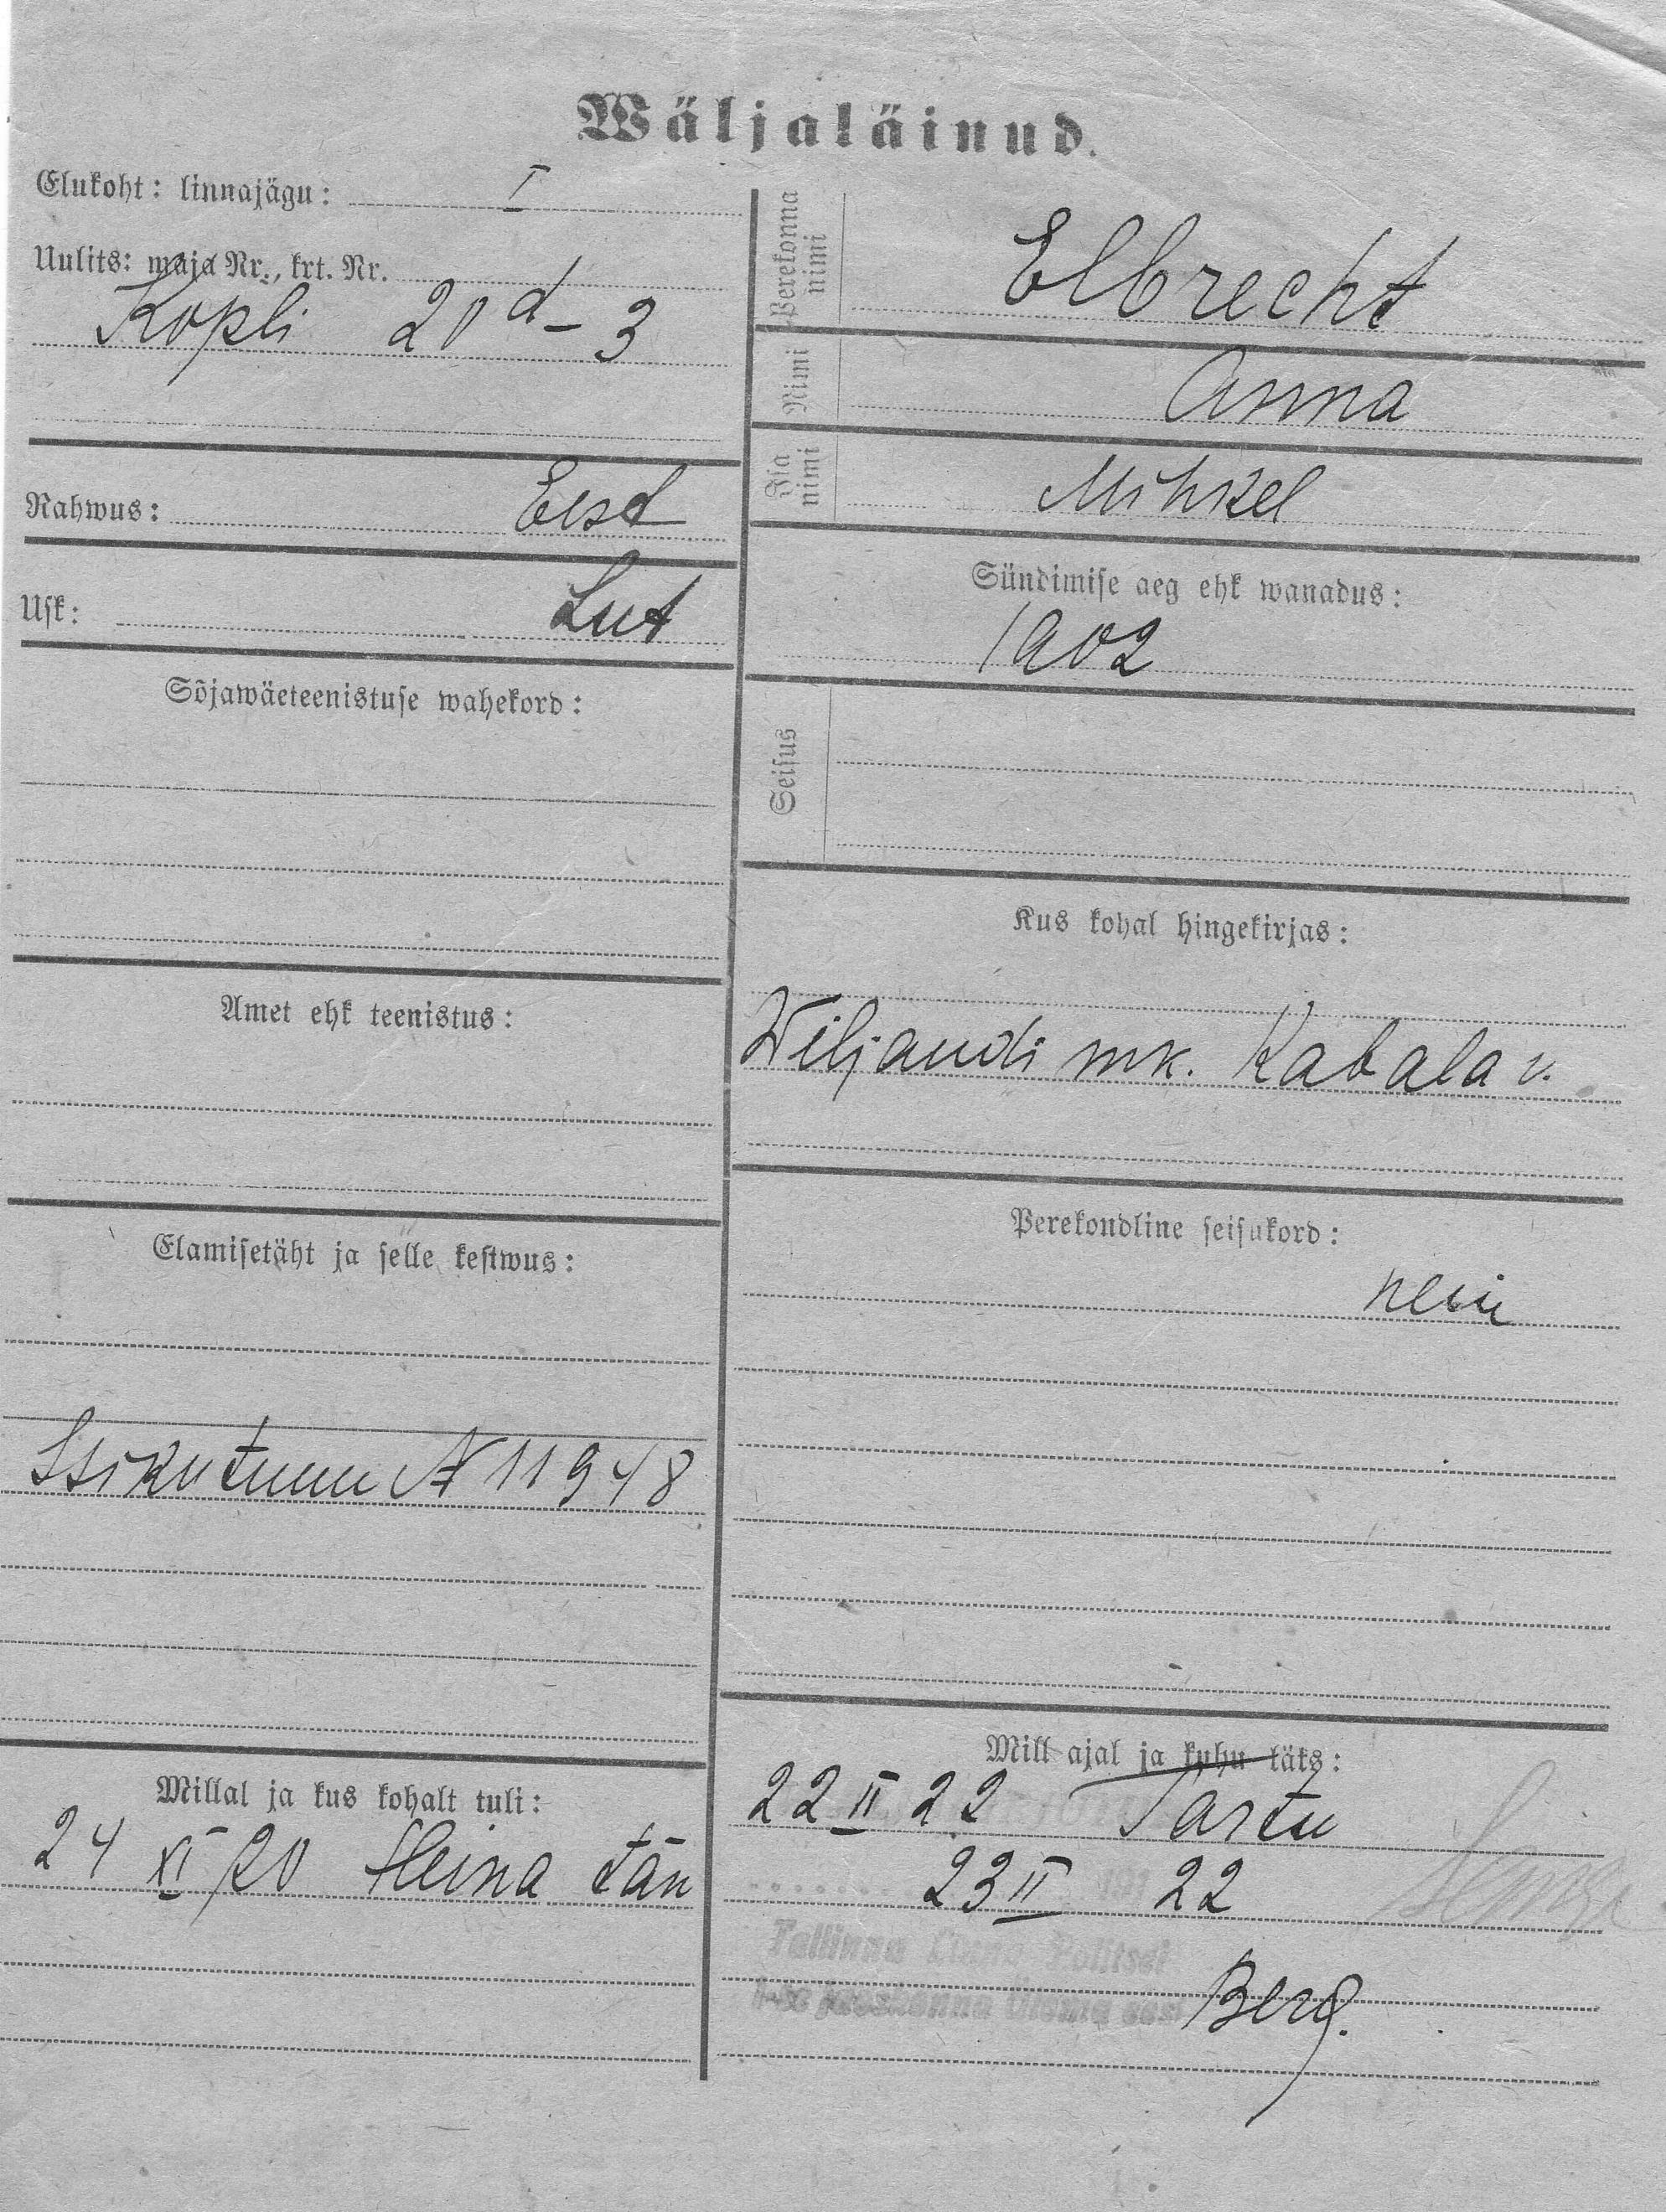 Wäljaläinud.
Elukoht: linnajägu: I
Uulits: maja Nr., krt. Nr.
Kopli 20 d - 3
Rahwus: Eest
Usk: Lut
Sõjawäeteenistuse wahekord:
Amet ehk teenistus:
Elamisetäht ja selle kestwus:
Isikutunn № 11948
Millal ja kus kohalt tuli:
24 XI 20 Heina tän
Perekonna nimi Elbrecht
Nimi Anna
Isa nimi Mihkel
Sündimise aeg ehk wanadus:
1902
Seisus
Kus kohal hingekirjas:
Wiljandi mk. Kabala v.
Perekondline seisukord:
neiu
Mill ajal ja kuhu läks:
22 II 22 Tartu
23 II 22
Tallinna Linna Politsei
Berg.